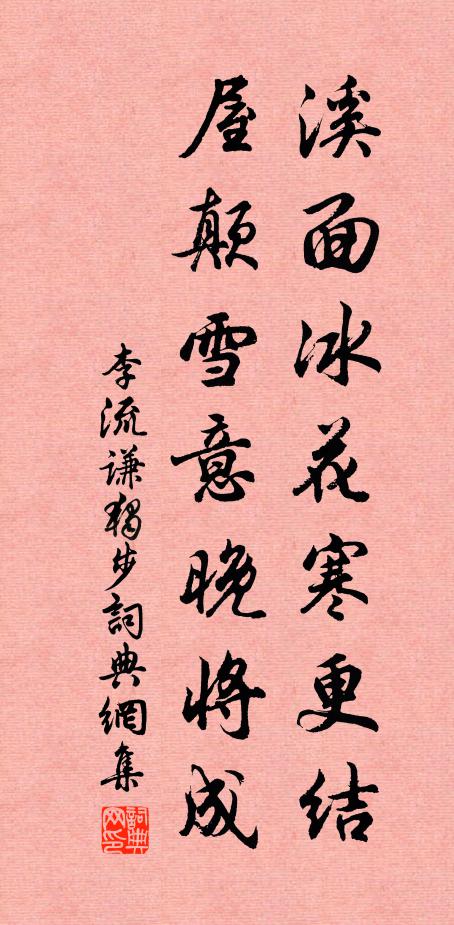 溪面冰花寒更结
屋颠雪意晚将成
李流谦独步詞典網集
詞典网印